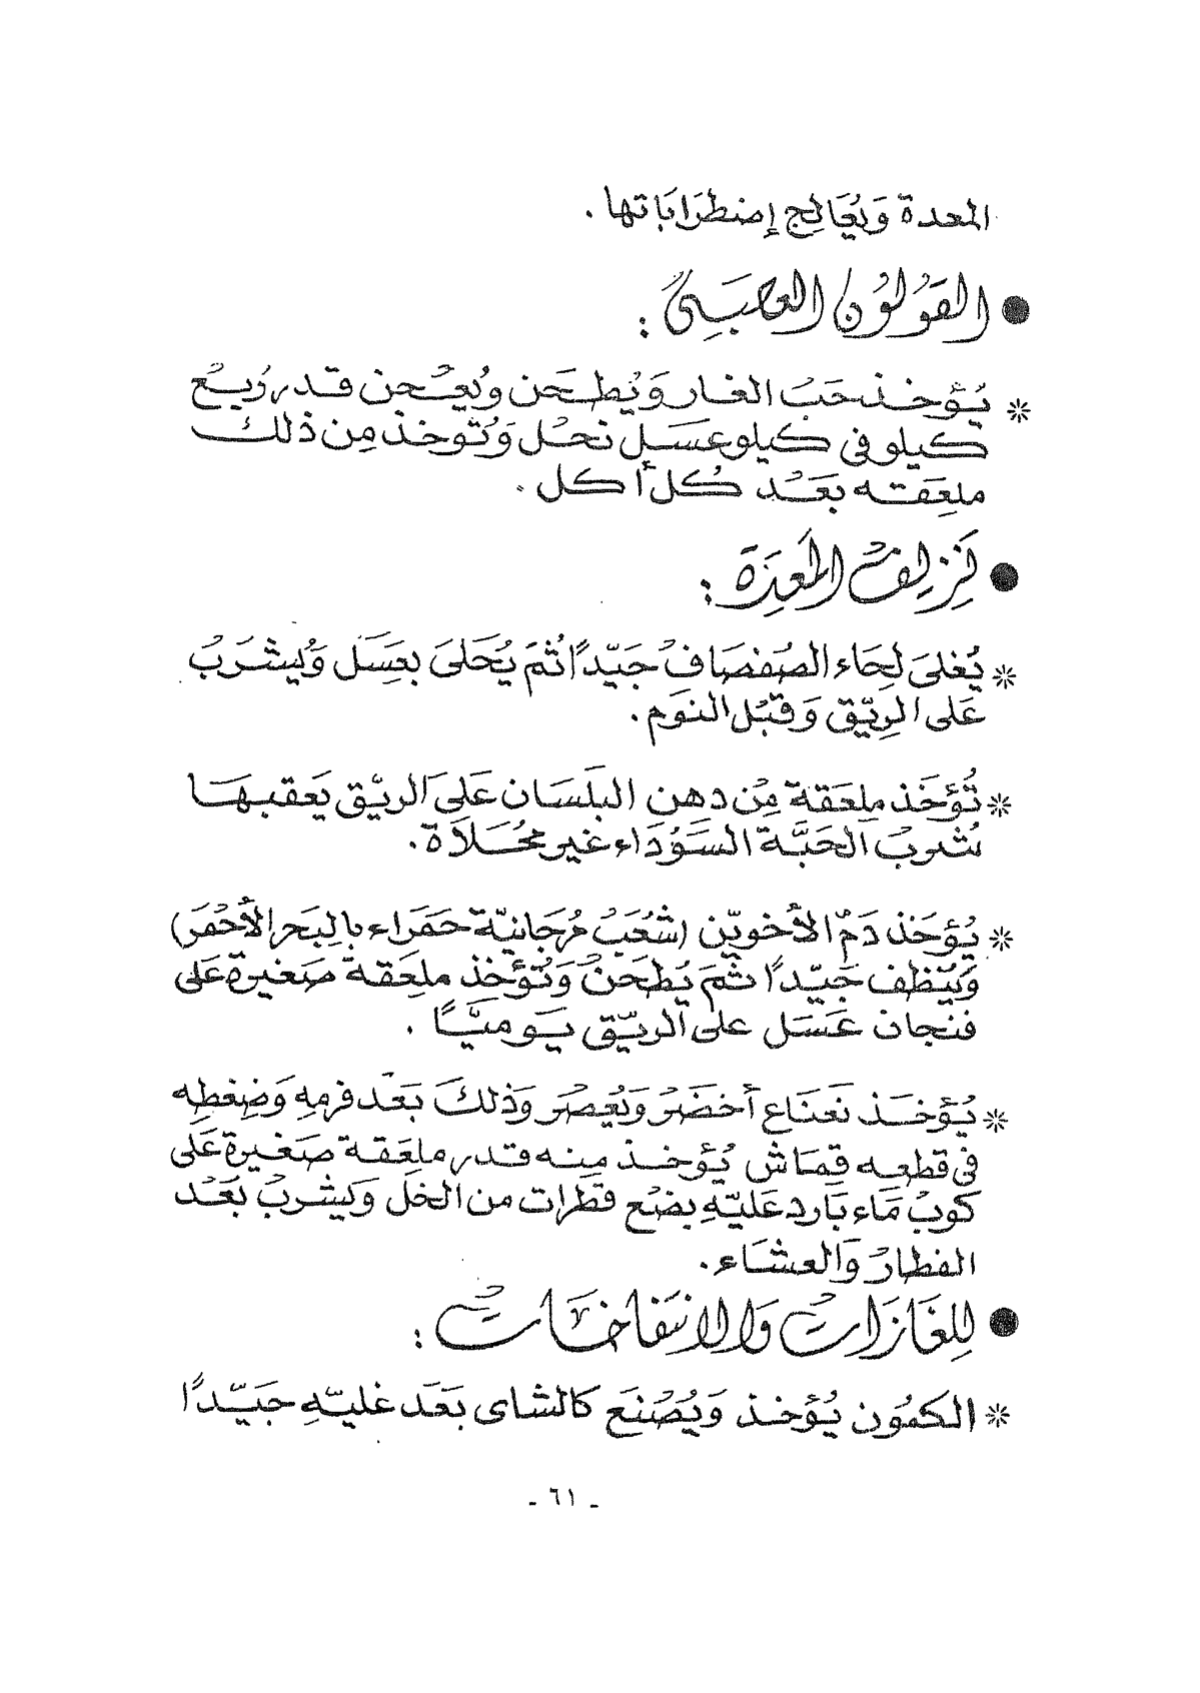 المعدة وَيُعَالِج إضطرَابَاتها .
● القَولُون العصَبِىّ :
* يُؤخذ حَبُ الغار وَيُطحَن ويُعجن قدر رُبع
كيلو فى كيلو عسَل نحل وَتُوخذ مِن ذلك
ملعَقته بَعَدْ كُل أكل .
● لِنَزِيف المَعِدَة :
* يُغلىَ لحِاء الصُفصَاف جَيّدًا ثُمَ يُحَلىَ بعسَل وَيُشرَبُ
عَلى الرِيّق وَقبُل النوَم .
* تُؤخَذ ملعَقة مِن دهن البلَسَان عَلىَ الريّق يَعقبهَا
شُربُ الحَبَّة السَوُدَاء غير محُلاَة .
* يُؤخَذ دَمُ الأخويّن (شُعَبُ مُرجَانيّة حمَرَاء بالبَحر الأحْمَر)
وَيُنظف جَيّدًا ثُمَ يُطحَنْ وَتُؤخذ ملعَقة صَغيرة عَلى
فنجان عَسَل على الريّق يَوميًّا .
* يُؤخَذ نَعنَاع أخضَرْ وَيُعصَر وَذلكَ بَعَد فرمهِ وَضِغطِه
فى قطعه قمَاش يُؤخذ مِنه قدر ملعَقة صَغيرة عَلى
كوبُ مَاء بَارد عَليّهِ بضْع قطرات من الخل وَيشربُ بَعَدْ
الفطارْ وَالعشَاء .
● لِلغَازَات وَالانتفَاخَات :
* الكمُون يُؤخذ وَيُصْنَع كالشاى بَعَد غليّهِ جَيّدًا
- ٦١ -